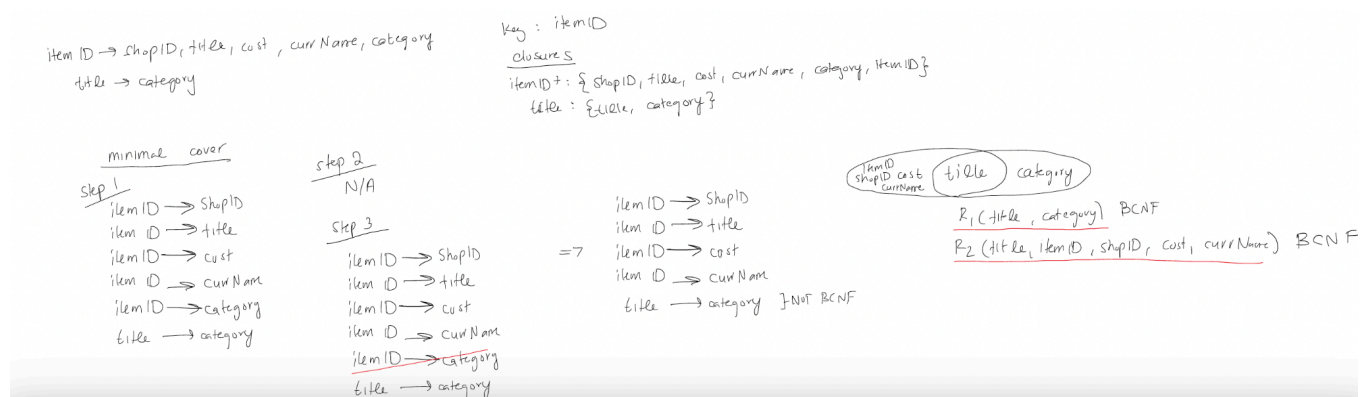 item ID → shopID, title, cost, currName, category
title → category
Key : itemID
closures
itemID+ : { shopID, title, cost, currName, category, itemID }
title : { title, category }
minimal cover
step 1
itemID → ShopID
item ID → title
itemID → cost
item ID → currNam
itemID → category
title → category
step 2
N/A
step 3
itemID → ShopID
item ID → title
itemID → cost
item ID → currNam
itemID → category
title → category
=>
itemID → ShopID
item ID → title
itemID → cost
item ID → currNam
title → category } NOT BCNF
itemID
shopID cost
currName
title
category
R1 (title, category) BCNF
R2 (title, itemID, shopID, cost, currName) BCNF